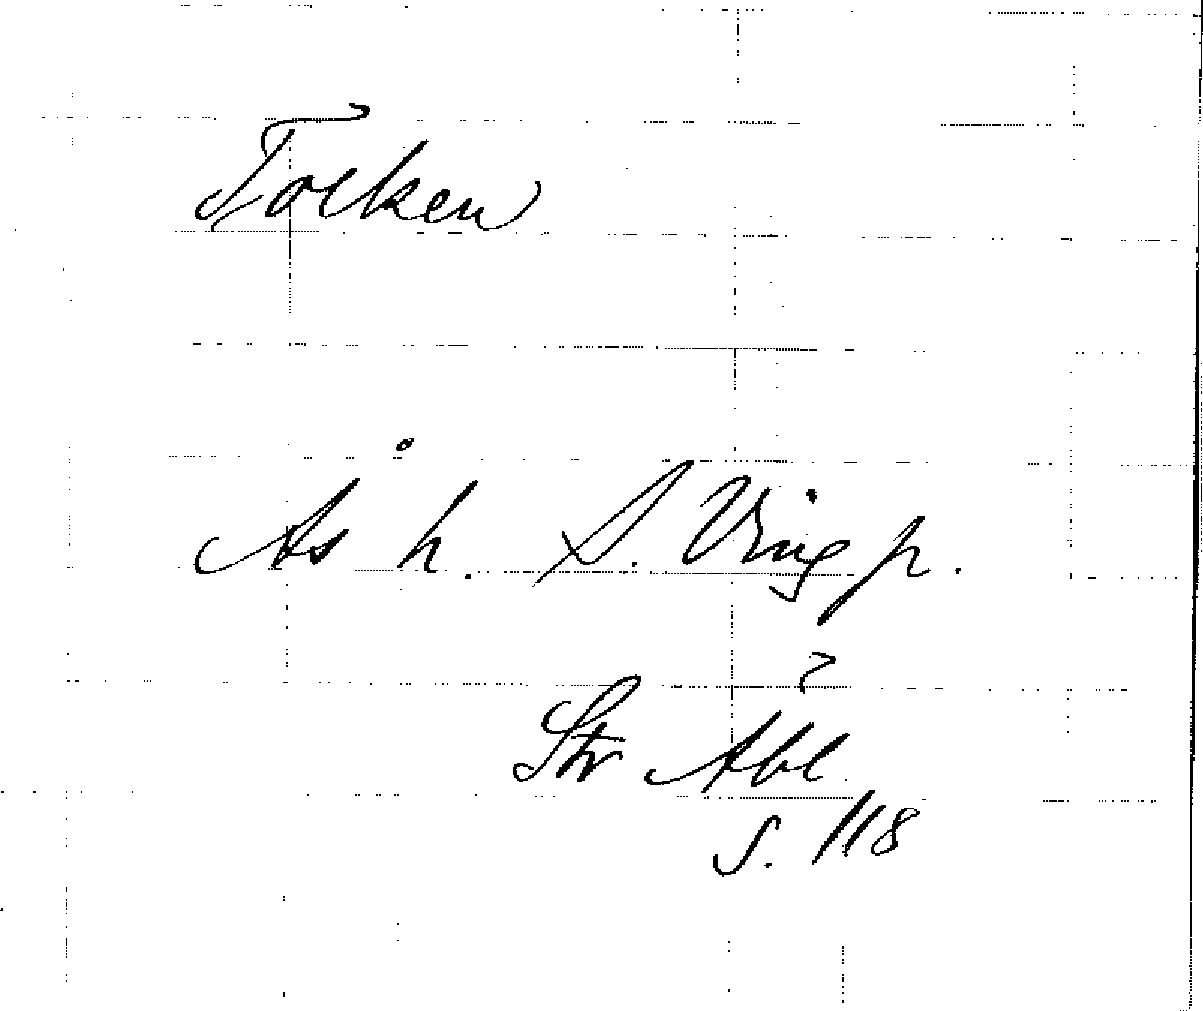 Tolken
Ås h. S. Ving p.
Str Åbl
s. 118